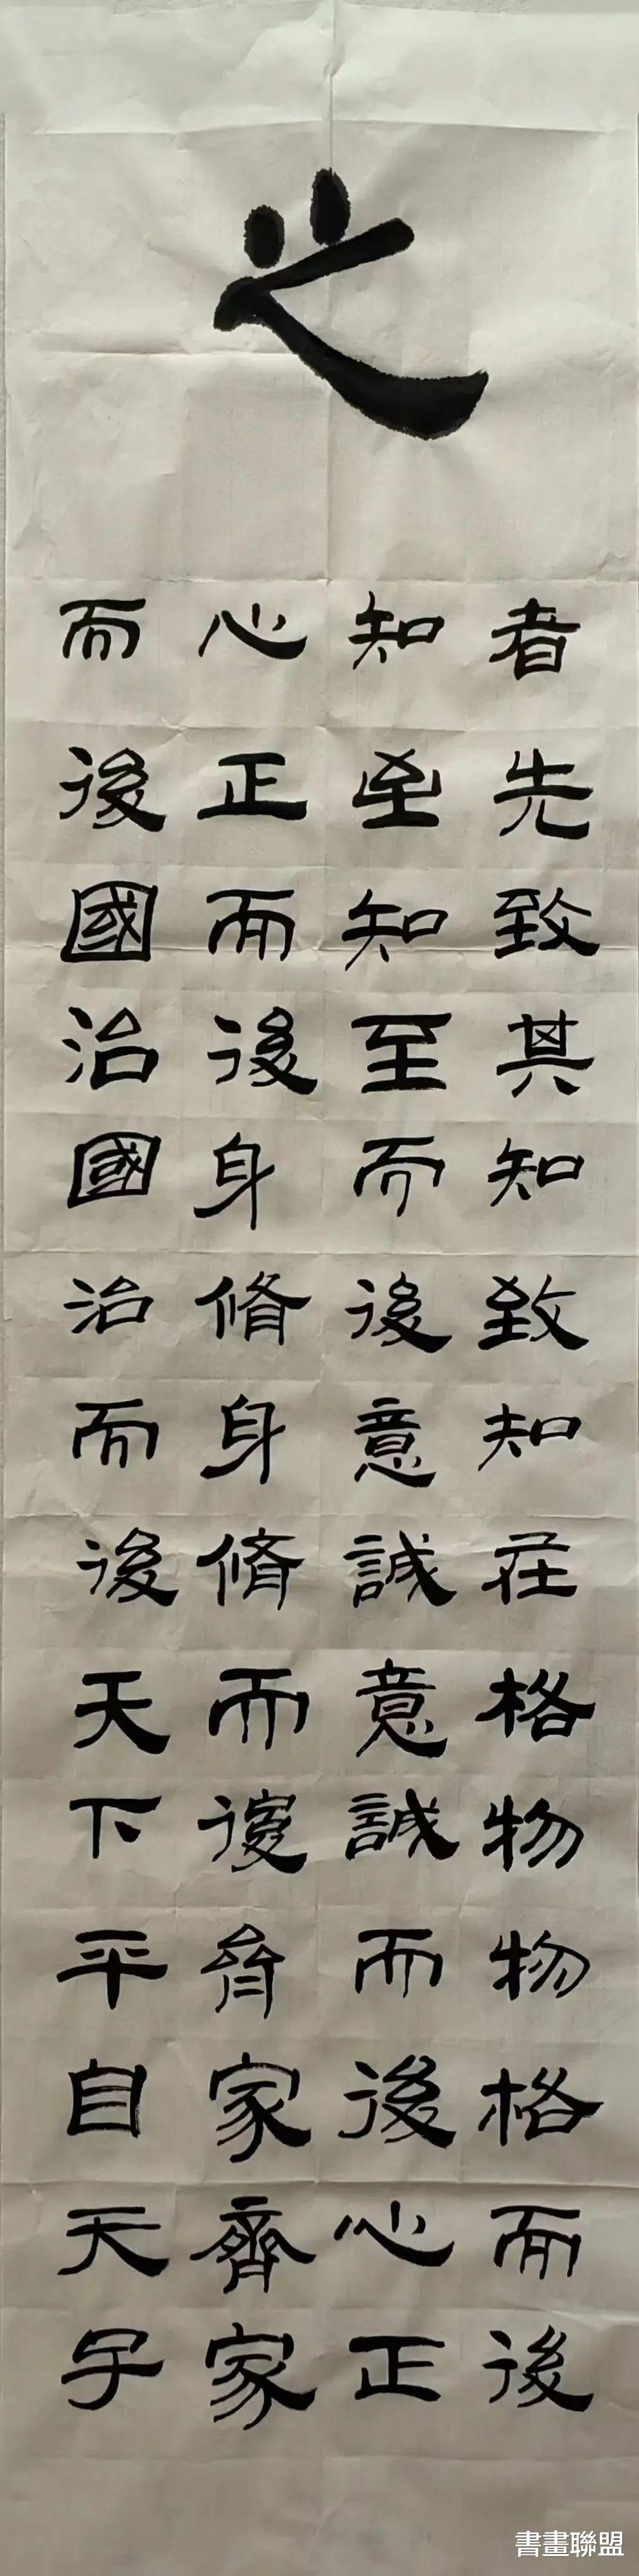 之
者先致其知致知在格物物格而後
知至知至而後意誠意誠而後心正
心正而後身脩身脩而後齊家齊家
而後國治國治而後天下平自天子
書畫聯盟